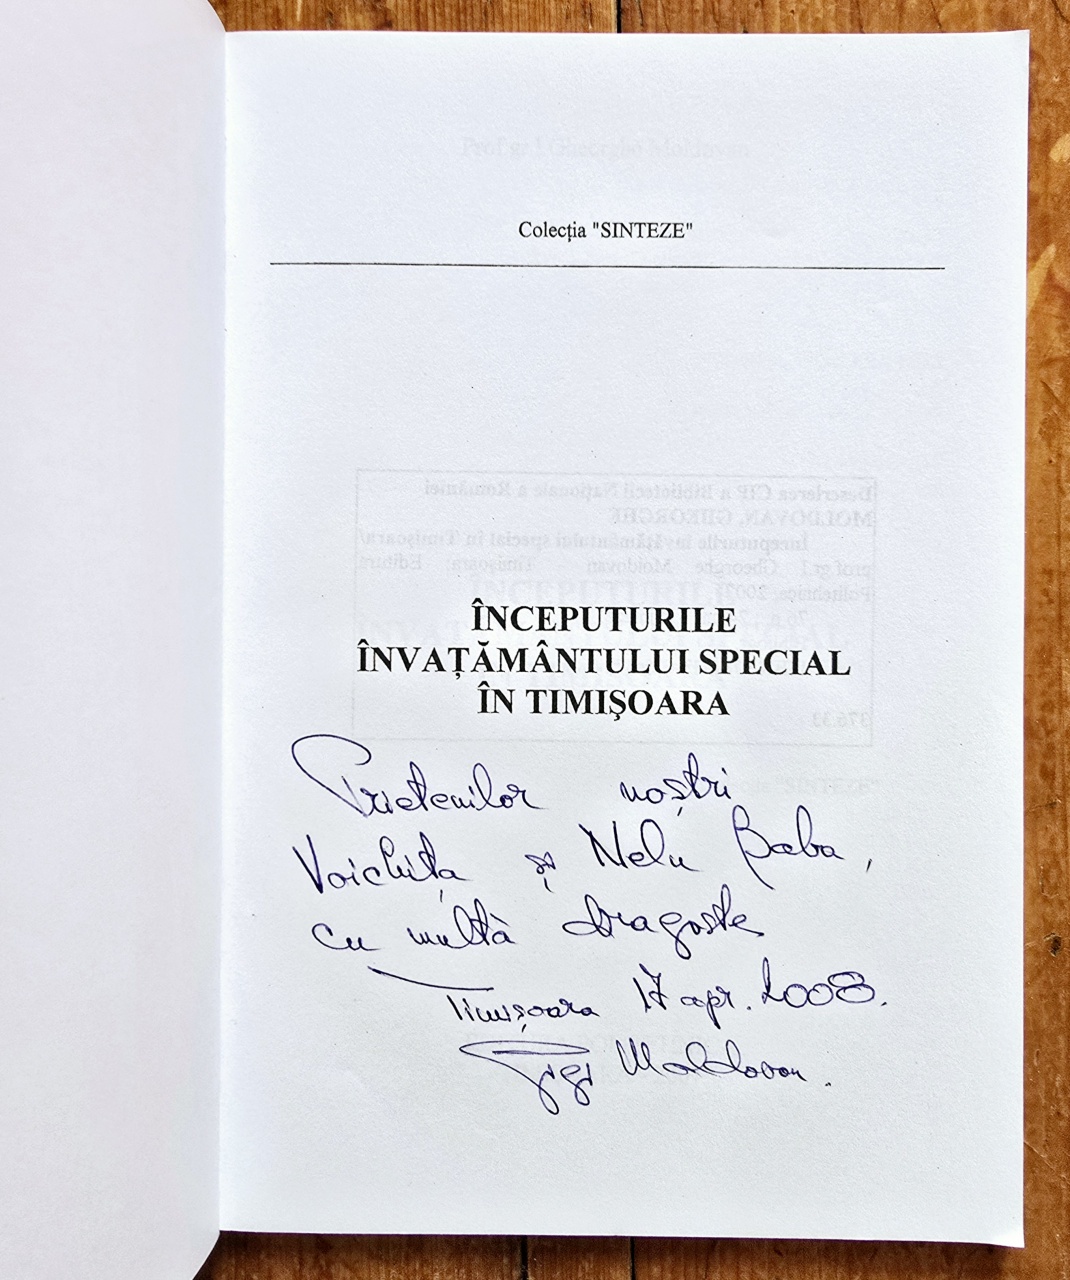 Colecția "SINTEZE"
ÎNCEPUTURILE
ÎNVAȚĂMÂNTULUI SPECIAL
ÎN TIMIȘOARA
Prietenilor noștri
Voichița și Nelu Baba,
cu multă dragoste
Timișoara 17 apr. 2008.
Gigi Moldovan.